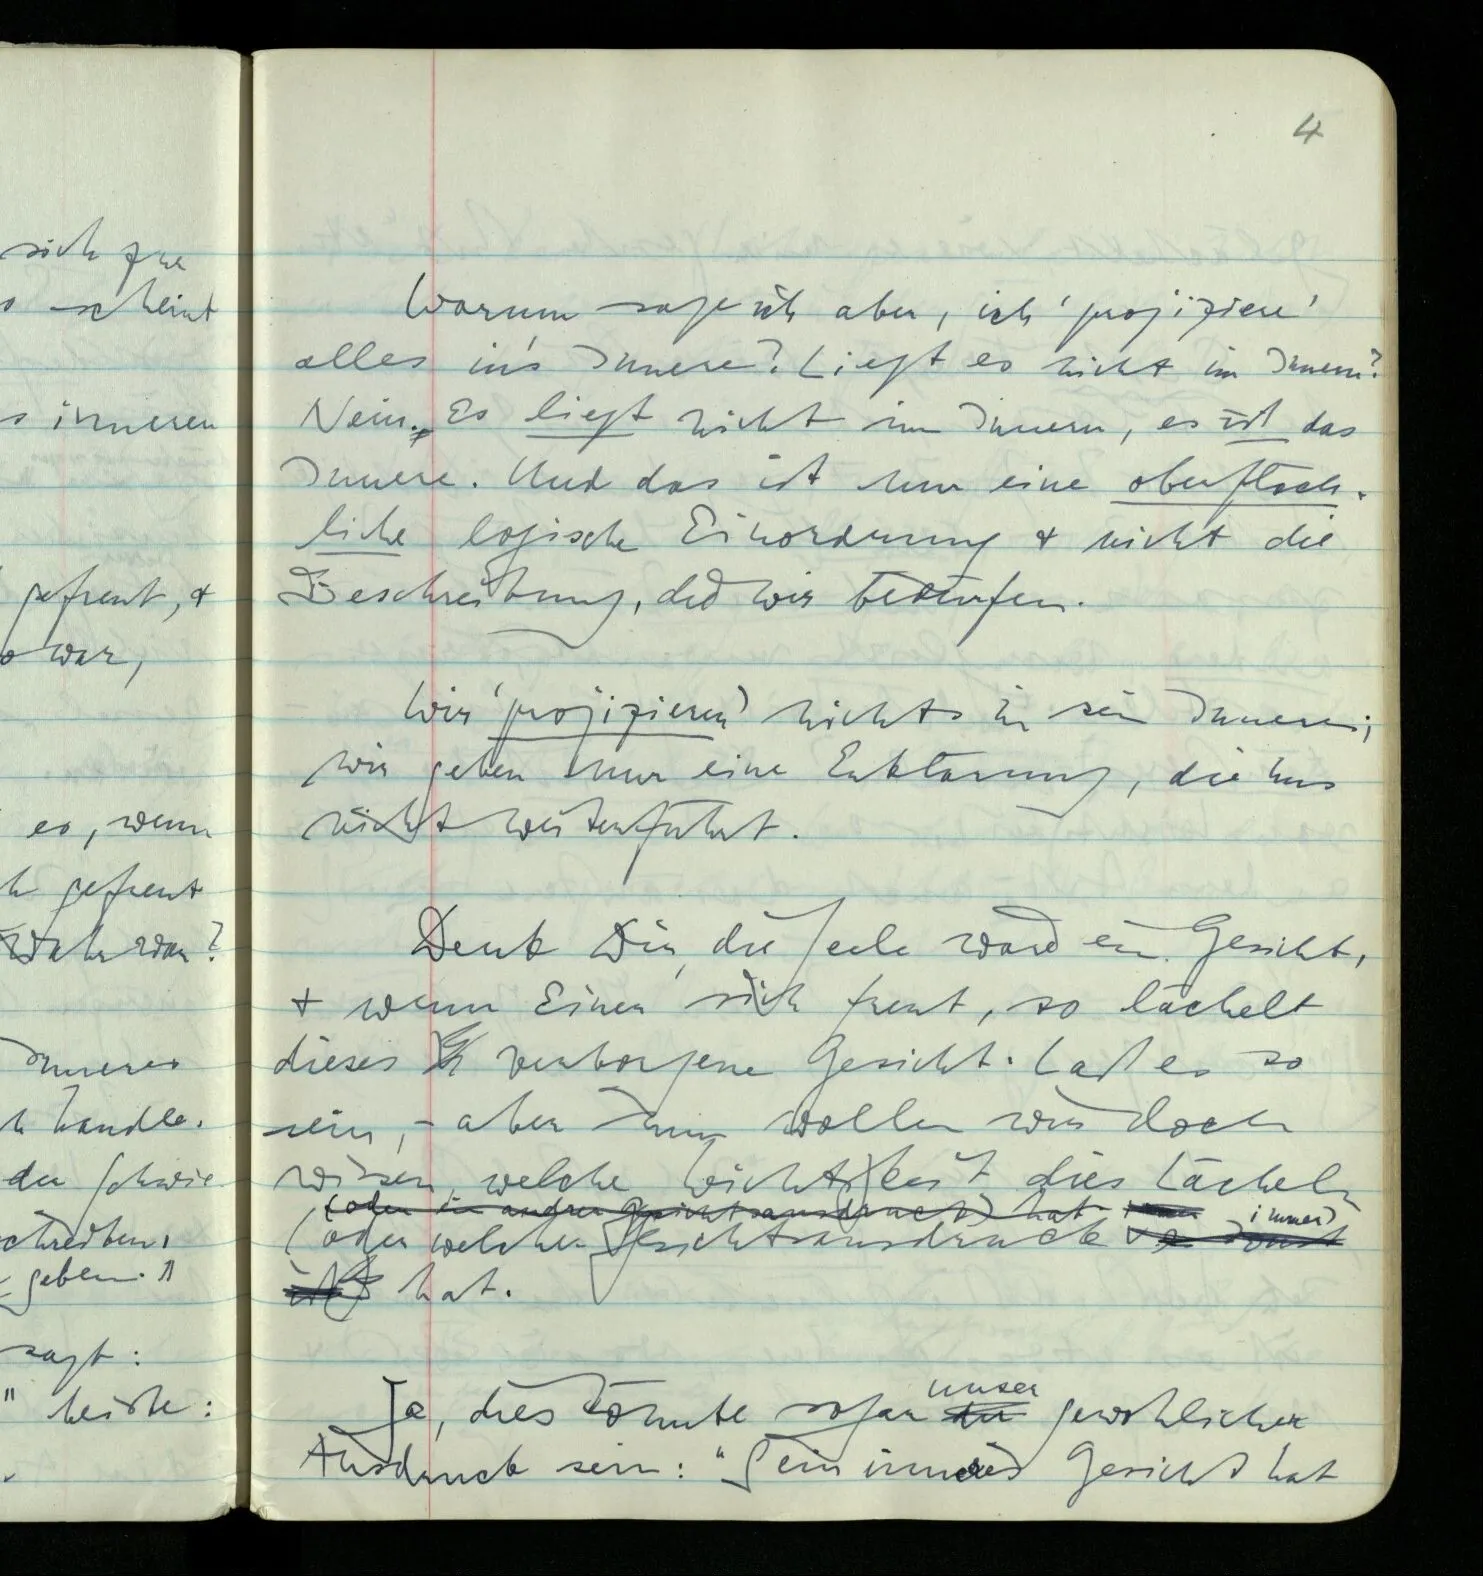 sich zu
o scheint
s inneren
gefreut, &
o war,
es, wenn
h gefreut
war?
Inneres
h handle.
der Schwie
chreiben,
geben."
sagt:
" heiße:
4
Warum sage ich aber, ich 'projiziere'
alles in's Innere? Liegt es nicht im Innern?
Nein. Es liegt nicht im Innern, es ist das
Innere. Und das ist nur eine oberfläch-
liche logische Einordnung & nicht die
Beschreibung, die wir bedürfen.
Wir 'projizieren' nichts in sein Inneres;
wir geben nur eine Erklärung, die uns
nicht weiterführt.
Denk Dir, die Seele wäre ein Gesicht,
& wenn Einer sich freut, so lächelt
dieses verborgene Gesicht. Laß es so
sein, – aber nun wollen wir doch
wissen, welche Wichtigkeit dies Lächeln
(oder ein andrer Gesichtsausdruck) hat
(oder welcher Gesichtsausdruck immer)
hat.
Ja, dies könnte sogar unser gewöhnlicher
Ausdruck sein: "Sein inneres Gesicht hat